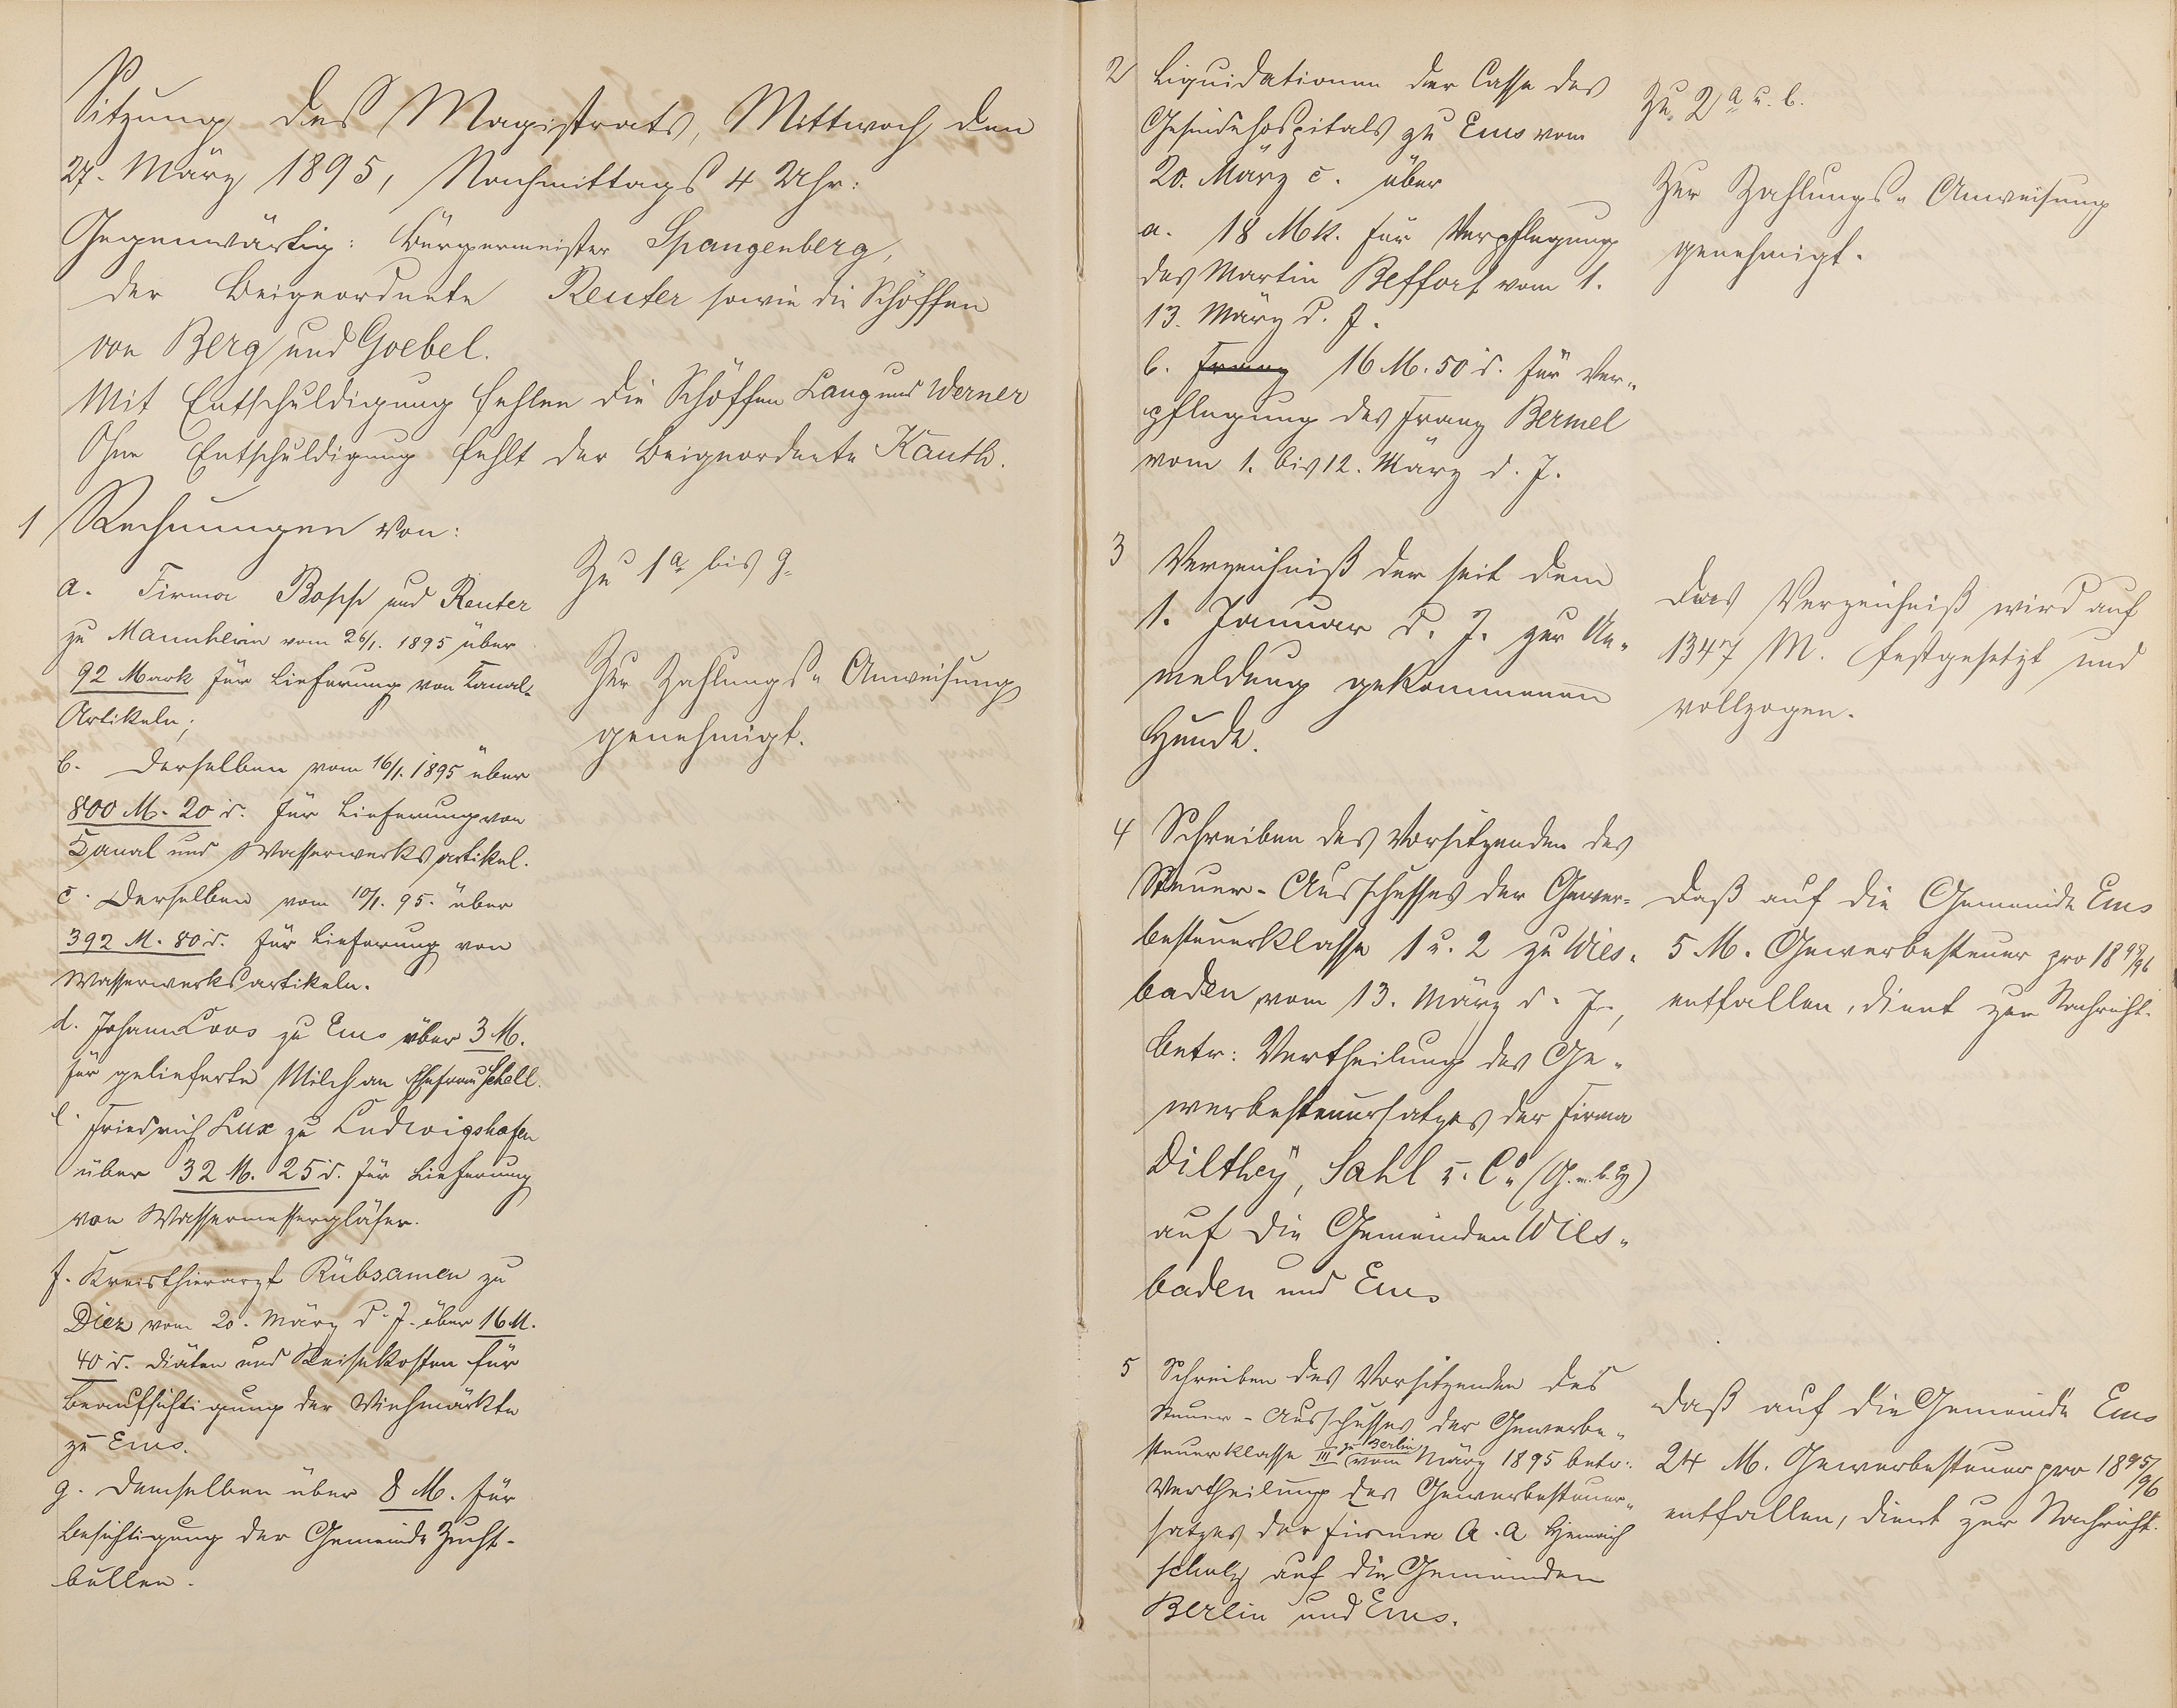 Sitzung des Magistrats, Mittwoch den
27. März 1895, Nachmittags 4 Uhr:
Gegenwärtig: Bürgermeister Spangenberg,
der Beigeordnete Reuter sowie die Schöffen
von Berg und Goebel.
Mit Entschuldigung fehlen die Schöffen Lang und Werner
Ohne Entschuldigung fehlt der Beigeordnete Kauth.
1 Rechnungen von:
a. Firma Bopp und Reuter
zu Mannheim vom 26/1. 1895 über
92 Mark für Lieferung von Kanal-
Artikeln;
b. Derselben vom 16/1. 1895 über
800 M. 20 d. für Lieferung von
Kanal und Wasserwerksartikel.
c. Derselben vom 10/1. 95. über
392 M. 80 d. für Lieferung von
Wasserwerksartikeln.
d. Johann Loos zu Ems über 3 M.
für gelieferte Milch an Ehefrau Schell.
e. Friedrich Lux zu Ludwigshafen
über 32 M. 25 d. für Lieferung
von Wassermessergläser.
f. Kreisthierarzt Rübsamen zu
Diez vom 20. März d. J. über 16 M.
40 d. Diäten und Reisekosten für
Beaufsichtigung der Viehmärkte
zu Ems.
g. Demselben über 8 M. für
Besichtigung der Gemeinde Zucht-
bullen.
Zu 1a bis g.
Zur Zahlungs-Anweisung
genehmigt.
2 Liquidationen der Casse des
Gesindehospitals zu Ems vom
20. März c. über
a. 18 Mk. für Verpflegung
des Martin Beffort vom 1.
13. März d. J.
b. Franz 16 M. 50 d. für Ver-
pflegung des Franz Bermel
vom 1. bis 12. März d. J.
Zu 2 a u. b.
Zur Zahlungs-Anweisung
genehmigt.
3 Verzeichniß der seit dem
1. Januar d. J. zur An-
meldung gekommenen
Hunde.
Das Verzeichniß wird auf
1347 M. festgesetzt und
vollzogen.
4 Schreiben des Vorsitzenden des
Steuer-Ausschusses der Gewer-
besteuerklasse 1 u. 2 zu Wies-
baden vom 13. März d. J.,
betr: Vertheilung des Ge-
werbesteuersatzes der Firma
Dilthey, Sahl u. Co (G. m. b. H)
auf die Gemeinden Wies-
baden und Ems
Daß auf die Gemeinde Ems
5 M. Gewerbesteuer pro 1895/96
entfallen, dient zur Nachricht.
5 Schreiben des Vorsitzenden des
Steuer-Ausschusses der Gewerbe-
steuerklasse III zu Berlin vom März 1895 betr:
Vertheilung des Gewerbesteuer-
satzes der Firma A. A Heinrich
Schulz auf die Gemeinden
Berlin und Ems.
Daß auf die Gemeinde Ems
24 M. Gewerbesteuer pro 1895/96
entfallen, dient zur Nachricht.